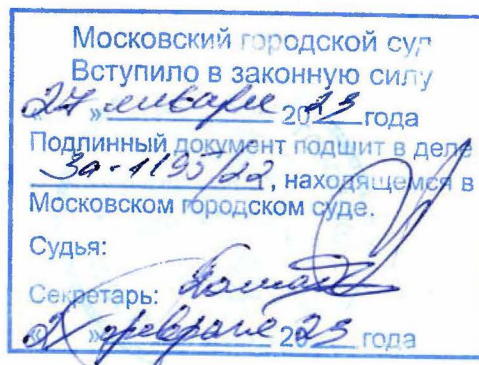 Московский городской суд
Вступило в законную силу
27 » января 2023 года
Подлинный документ подшит в деле
3а-1195/22, находящемся в
Московском городском суде.
Судья:
Секретарь:
« 2 » февраля 2023 года